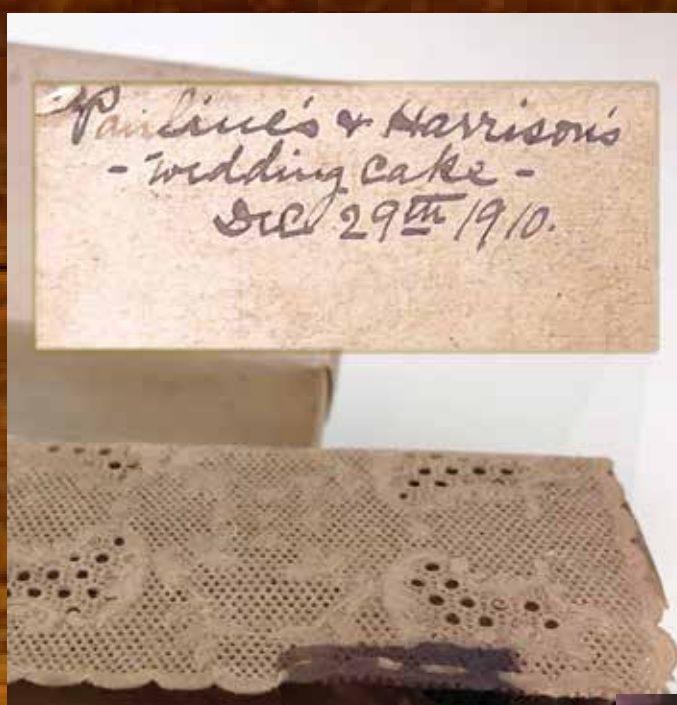 Pauline's & Harrison's
- Wedding Cake -
Dec. 29th 1910.